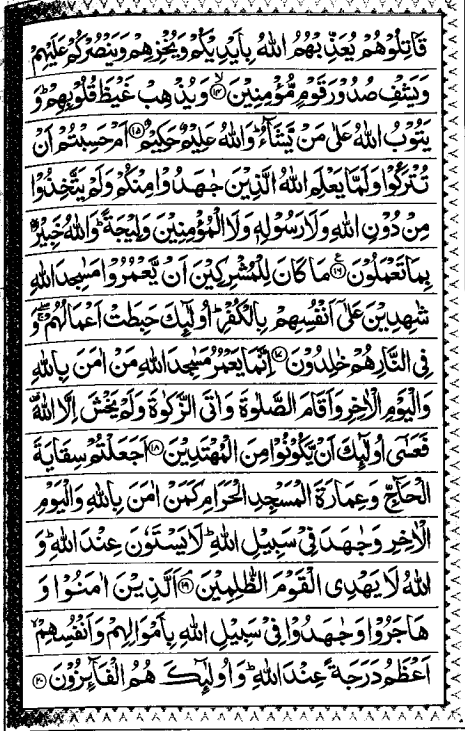 قَاتِلُوْهُمْ يُعَذِّبْهُمُ اللّٰهُ بِاَيْدِيْكُمْ وَيُخْزِهِمْ وَيَنْصُرْكُمْ عَلَيْهِمْ
وَيَشْفِ صُدُوْرَ قَوْمٍ مُّؤْمِنِيْنَ ۙ﴿۱۴﴾ وَيُذْهِبْ غَيْظَ قُلُوْبِهِمْ ؕ وَ
يَتُوْبُ اللّٰهُ عَلٰى مَنْ يَّشَآءُ ؕ وَاللّٰهُ عَلِيْمٌ حَكِيْمٌ ﴿۱۵﴾ اَمْ حَسِبْتُمْ اَنْ
تُتْرَكُوْا وَلَمَّا يَعْلَمِ اللّٰهُ الَّذِيْنَ جٰهَدُوْا مِنْكُمْ وَلَمْ يَتَّخِذُوْا
مِنْ دُوْنِ اللّٰهِ وَلَا رَسُوْلِهٖ وَلَا الْمُؤْمِنِيْنَ وَلِيْجَةً ؕ وَاللّٰهُ خَبِيْرٌۢ
بِمَا تَعْمَلُوْنَ ﴿۱۶﴾ۧ مَا كَانَ لِلْمُشْرِكِيْنَ اَنْ يَّعْمُرُوْا مَسٰجِدَ اللّٰهِ
شٰهِدِيْنَ عَلٰٓى اَنْفُسِهِمْ بِالْكُفْرِ ؕ اُولٰٓئِكَ حَبِطَتْ اَعْمَالُهُمْ ۚۖ وَ
فِى النَّارِ هُمْ خٰلِدُوْنَ ﴿۱۷﴾ اِنَّمَا يَعْمُرُ مَسٰجِدَ اللّٰهِ مَنْ اٰمَنَ بِاللّٰهِ
وَالْيَوْمِ الْاٰخِرِ وَاَقَامَ الصَّلٰوةَ وَاٰتَى الزَّكٰوةَ وَلَمْ يَخْشَ اِلَّا اللّٰهَ
فَعَسٰٓى اُولٰٓئِكَ اَنْ يَّكُوْنُوْا مِنَ الْمُهْتَدِيْنَ ﴿۱۸﴾ اَجَعَلْتُمْ سِقَايَةَ
الْحَآجِّ وَعِمَارَةَ الْمَسْجِدِ الْحَرَامِ كَمَنْ اٰمَنَ بِاللّٰهِ وَالْيَوْمِ
الْاٰخِرِ وَجٰهَدَ فِىْ سَبِيْلِ اللّٰهِ ؕ لَا يَسْتَوٗنَ عِنْدَ اللّٰهِ ؕ وَ
اللّٰهُ لَا يَهْدِى الْقَوْمَ الظّٰلِمِيْنَ ﴿۱۹﴾ۘ اَلَّذِيْنَ اٰمَنُوْا وَ
هَاجَرُوْا وَجٰهَدُوْا فِىْ سَبِيْلِ اللّٰهِ بِاَمْوَالِهِمْ وَاَنْفُسِهِمْ ۙ
اَعْظَمُ دَرَجَةً عِنْدَ اللّٰهِ ؕ وَاُولٰٓئِكَ هُمُ الْفَآئِزُوْنَ ﴿۲۰﴾